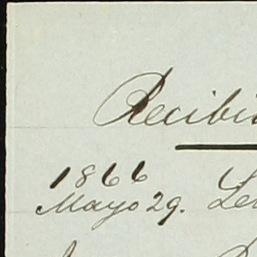 Recibi
1866
Mayo 29. Le